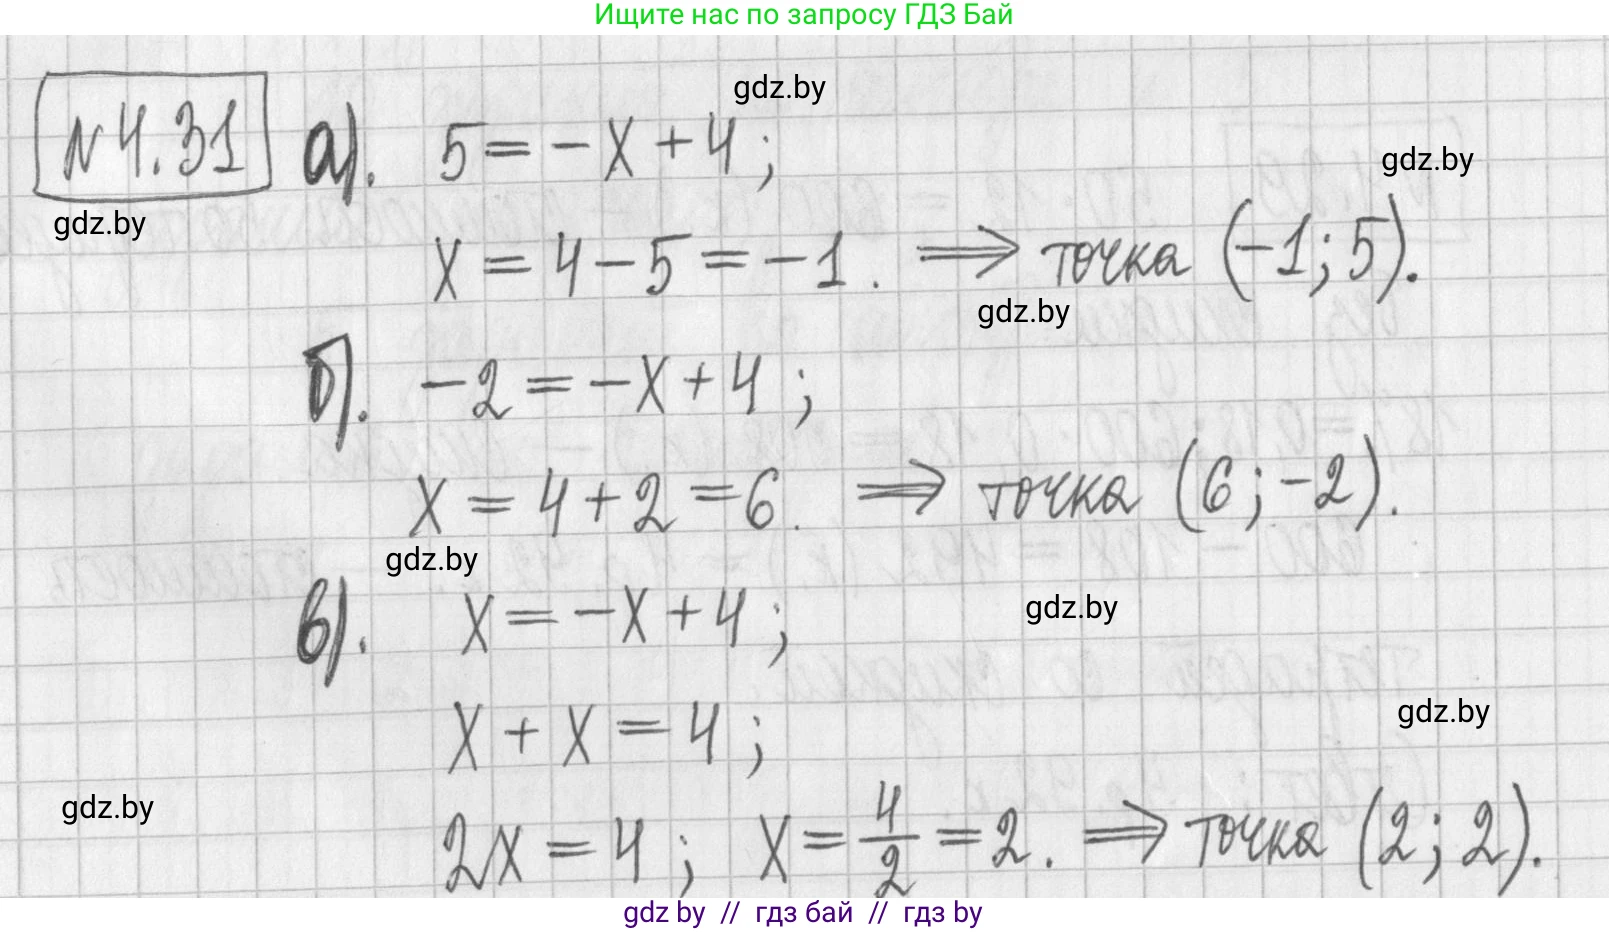 Ищите нас по запросу ГДЗ Бай
gdz.by
№4.31 а). 5 = -x + 4 ;
gdz.by
gdz.by
x = 4 - 5 = -1 . ⟹ точка (-1; 5).
gdz.by
б). -2 = -x + 4 ;
x = 4 + 2 = 6 . ⟹ точка (6 ; -2).
gdz.by
в). x = -x + 4 ;
gdz.by
x + x = 4 ;
gdz.by
gdz.by
2x = 4 ; x = 4/2 = 2 . ⟹ точка (2 ; 2).
gdz by // гдз бай // гдз by